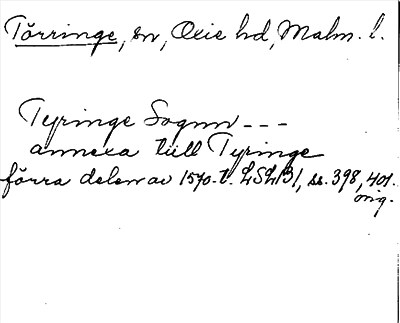 Törringe, sn, Oxie hd, Malm. l.
Tyringe Sognn ---
annexa till Tyringe
förra delen av 1570-t. LSLB1, ss. 398, 401.
orig.